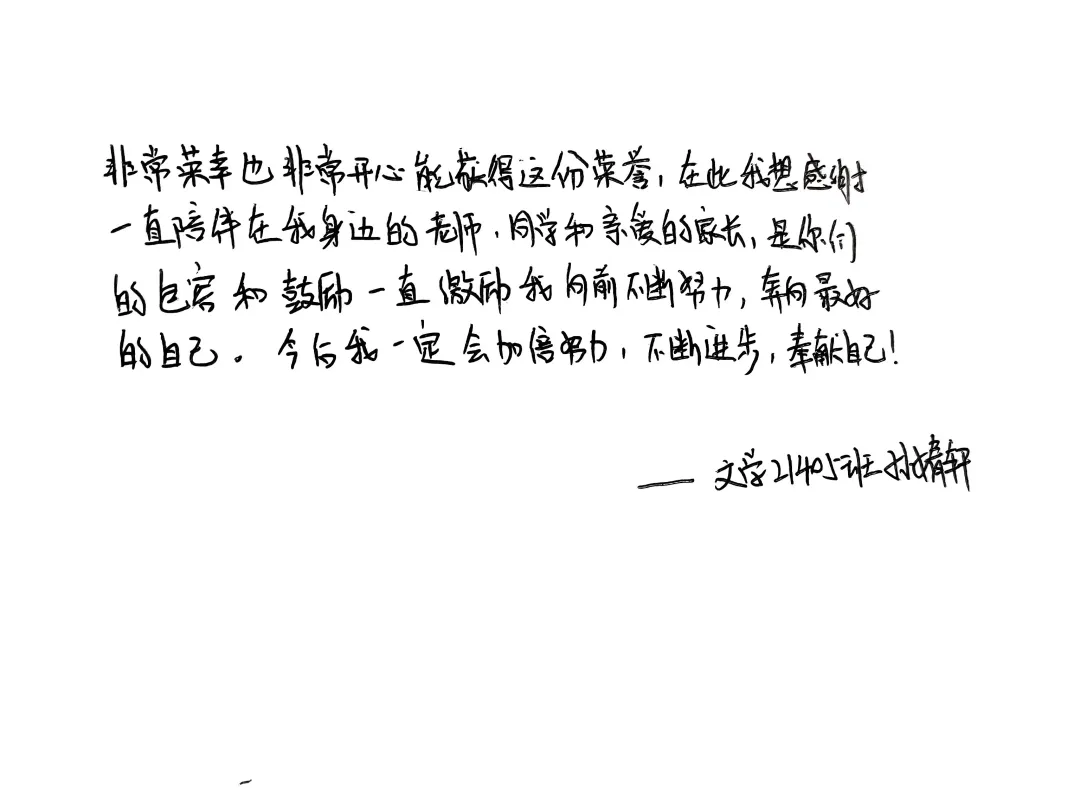 非常荣幸也非常开心能获得这份荣誉，在此我想感谢
一直陪伴在我身边的老师、同学和亲爱的家长，是你们
的包容和鼓励一直激励我向前不断努力，奔向最好
的自己。今后我一定会加倍努力，不断进步，奉献自己！
——文学21405班 孙婧轩